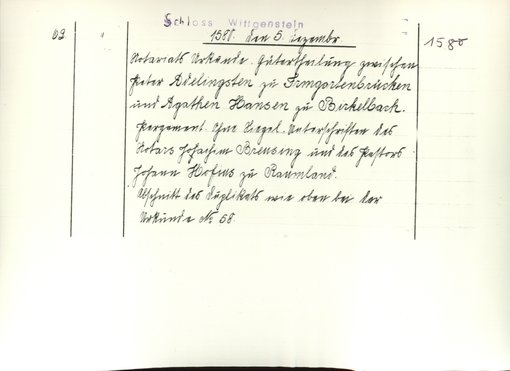 Schloss Wittgenstein
69
1580. den 5. Dezembr.
1580
Notariats Urkunde. Gütertheilung zwischen
Peter Adelingsten zu Irmgartenbrücken
und Agathen Hansen zu Birkelbach.
Pergament. Ohne Siegel. Unterschriften des
Notars Johachim Breusing und des Pastors
Johann Hofius zu Raumland.
Abschnitt des Duplikats wie oben bei der
Urkunde № 68.